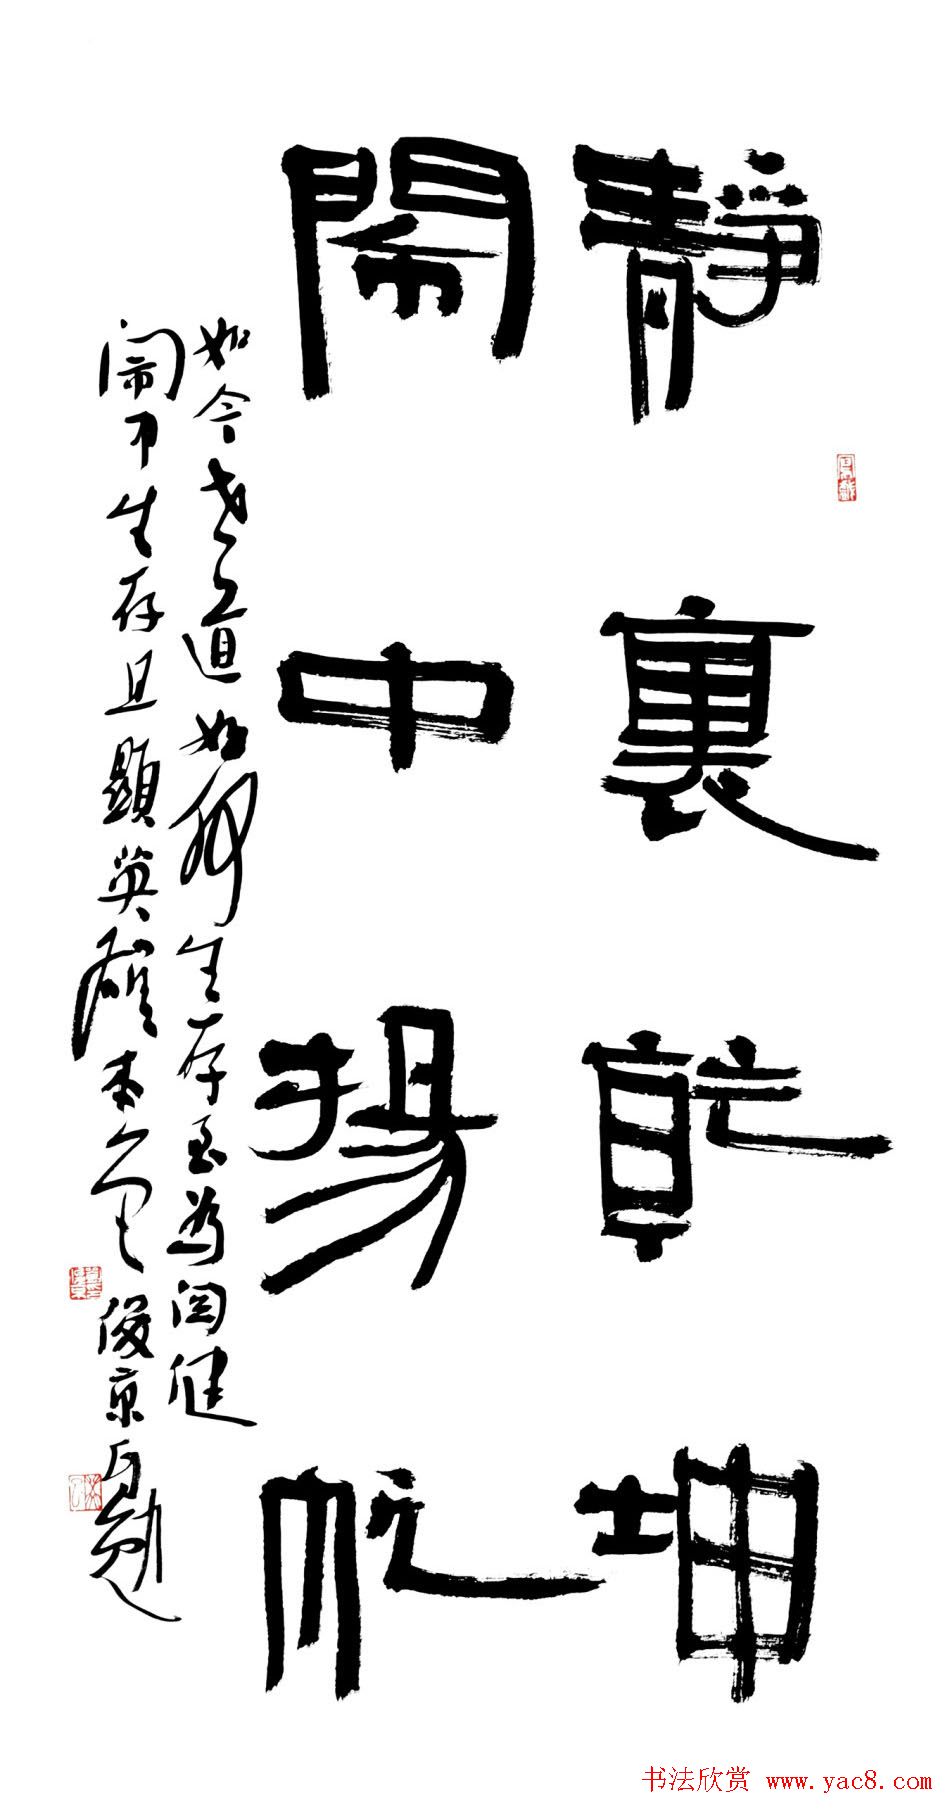 靜裏乾坤
鬧中揚帆
如今世道如何生存至為関健
鬧中生存且顯英雄本色 俊京自勉
书法欣赏 www.yac8.com